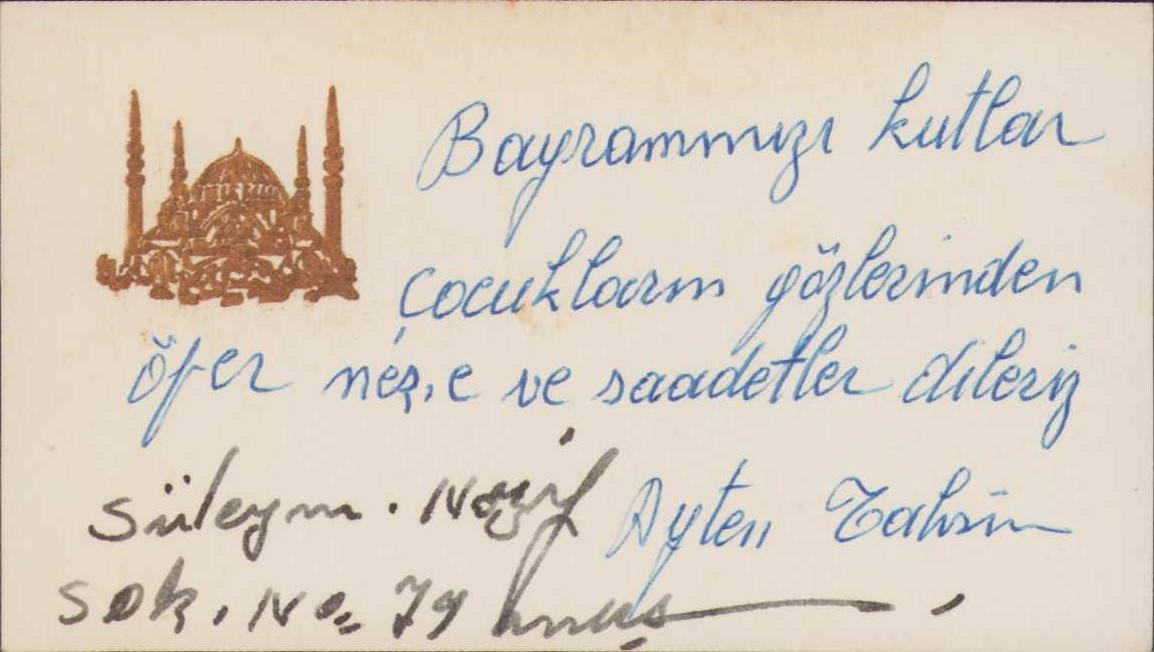 Bayramınızı kutlar
çocukların gözlerinden
öper neş'e ve saadetler dileriz
Ayten Tahsin
Süleym. Nazif
Sok. No. 79